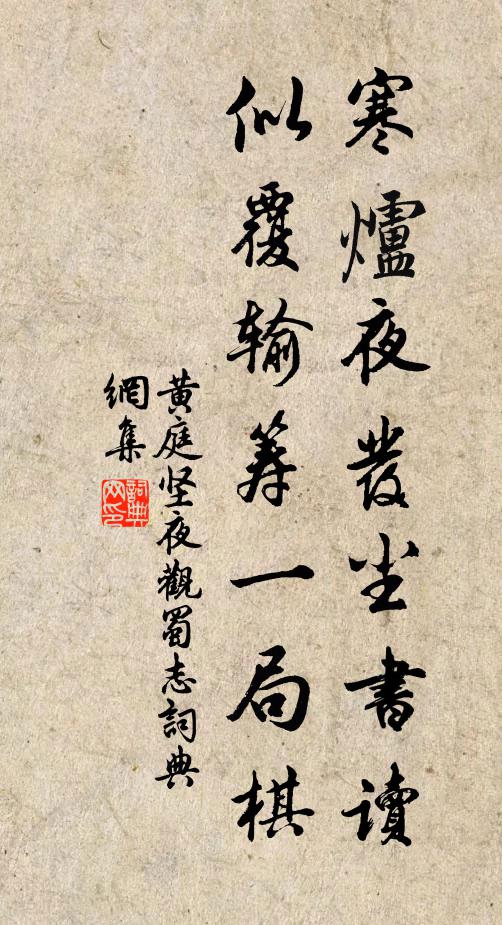 寒爐夜發尘書讀
似覆输筹一局棋
黄庭坚夜觀蜀志詞典
網集
詞典
网印